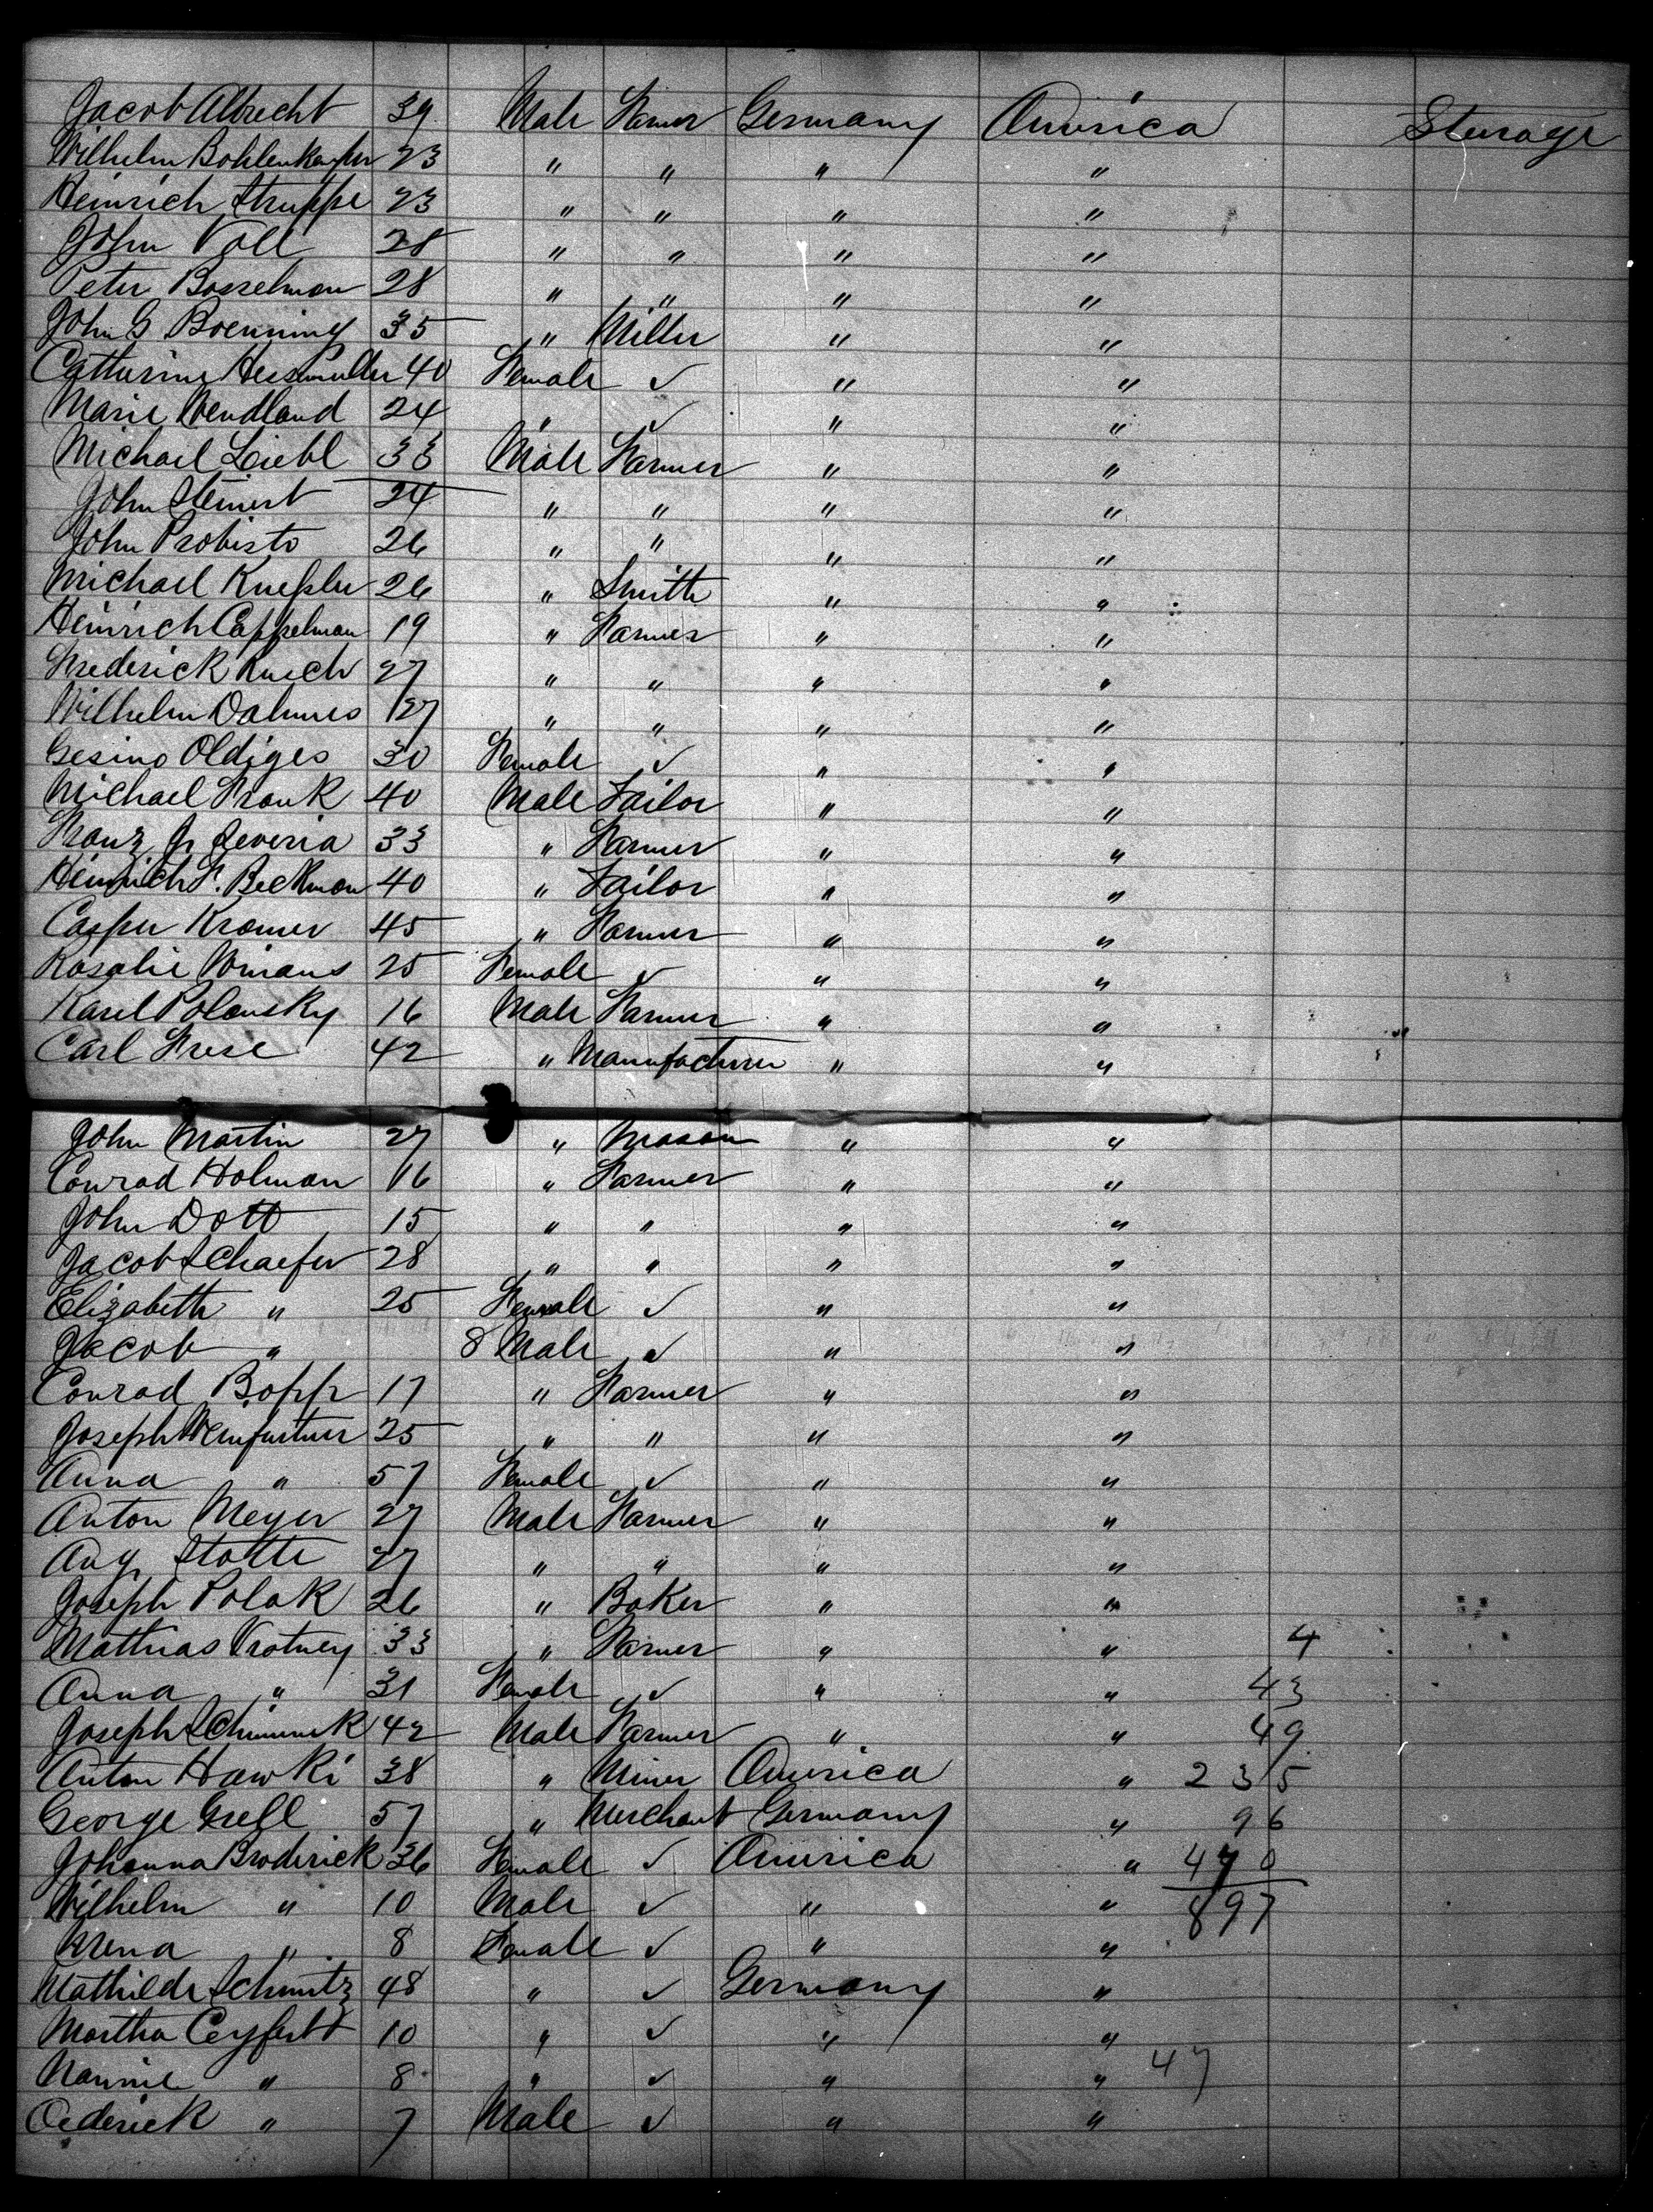 Jacob Albrecht 39 Male Farmer Germany America Sterage
Wilhelm Bohlenkamper 23 " " " "
Heinrich Struppe 23 " " " "
John Voll 28 " " " "
Peter Bosselman 28 " " " "
John G Boenning 35 " Miller " "
Catharine Heismuller 40 Female ✓ " "
Marie Wendland 24 " ✓ " "
Michael Liebl 33 Male Farmer " "
John Steinert 24 " " " "
John Probisto 26 " " " "
Michael Knepler 26 " Smith " "
Heinrich Cappelman 19 " Farmer " "
Frederick Rusch 27 " " " "
Wilhelm Dahmes 27 " " " "
Gesino Oldiges 30 Female ✓ " "
Michael Frank 40 Male Tailor " "
Franz Jr Jeveria 33 " Farmer " "
Heinrich F. Beckman 40 " Tailor " "
Casper Kramer 45 " Farmer " "
Rosalie Winans 25 Female ✓ " "
Karel Polansky 16 Male Farmer " "
Carl Frese 42 " Manufacturer " "
John Martin 27 " Mason " "
Conrad Holman 16 " Farmer " "
John Dott 15 " " " "
Jacob Schaefer 28 " " " "
Elizabeth " 25 Female ✓ " "
Jacob " 8 Male ✓ " "
Conrad Bopp 17 " Farmer " "
Joseph Weinfurtner 25 " " " "
Anna " 57 Female ✓ " "
Anton Meyer 27 Male Farmer " "
Aug Stolte 27 " " " "
Joseph Polak 26 " Baker " "
Mathias Vrotney 33 " Farmer " " 4
Anna " 31 Female ✓ " " 43
Joseph Schimmek 42 Male Farmer " " 49
Anton Hawki 38 " Miner America " 235
George Grell 57 " Merchant Germany " 96
Johanna Broderick 36 Female ✓ America " 470
Wilhelm " 10 Male ✓ " " 897
Mena " 8 Female ✓ " "
Mathilde Schmitz 48 " ✓ Germany "
Martha Ceyfert 10 " ✓ " "
Nannie " 8 " ✓ " " 47
Oederick " 7 Male ✓ " "